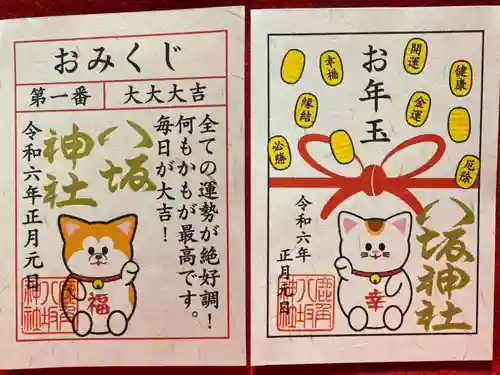 おみくじ
第一番
大大大吉
全ての運勢が絶好調！
何もかもが最高です。
毎日が大吉！
八坂
神社
令和六年正月元日
福
お年玉
開運
幸福
健康
金運
縁結
必勝
厄除
八坂神社
令和六年
正月元日
幸